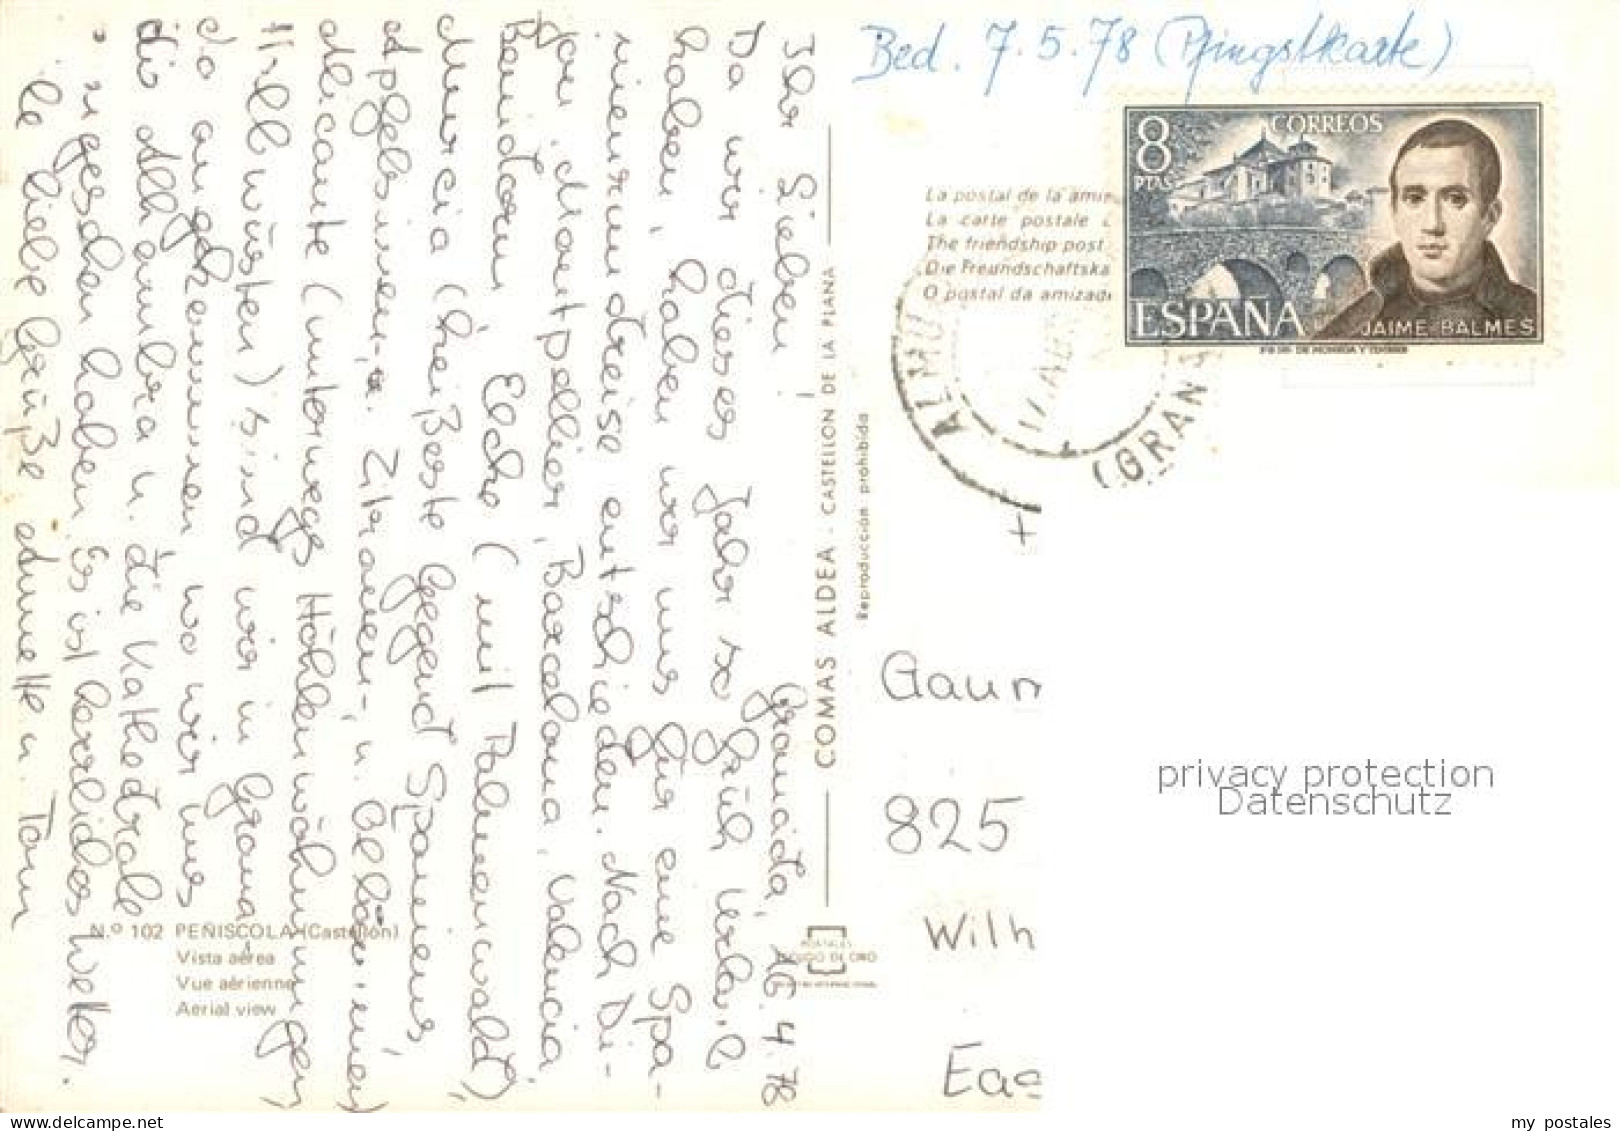 Bed. 7.5.78 (Pfingstkarte)
8
PTAS
CORREOS
ESPAÑA
JAIME BALMES
La postal de la amis
La carte postale
The friendship post
Die Freundschaftska
O postal da amizad
ALMU
(GRAN
Granada, 16.4.78
Ihr Lieben!
Da wir dieses Jahr so früh Urlaub
haben, haben wir uns für eine Spa-
nienrundreise entschieden. Nach Di-
jon, Montpellier, Barcelona, Valencia,
Benidorm, Elche (mit Palmenwald),
Murcia (heißeste Gegend Spaniens,
Apfelsinen- u. Zitronen-, u. Ölbäume)
Alicante (unterwegs Höhlenwohnungen,
Halbwüsten) sind wir in Granada
angekommen, wo wir uns
die Alhambra u. die Kathedrale
angesehen haben. Es ist herrliches Wetter.
liebe Grüße Annette u. Tom
COMAS ALDEA - CASTELLON DE LA PLANA
Reproducción prohibida
N.º 102 PEÑISCOLA (Castellón)
Vista aérea
Vue aérienne
Aerial view
POSTALES
ESCUDO DE ORO
Gaun
825
Wilh
Eas
privacy protection
Datenschutz
my postales